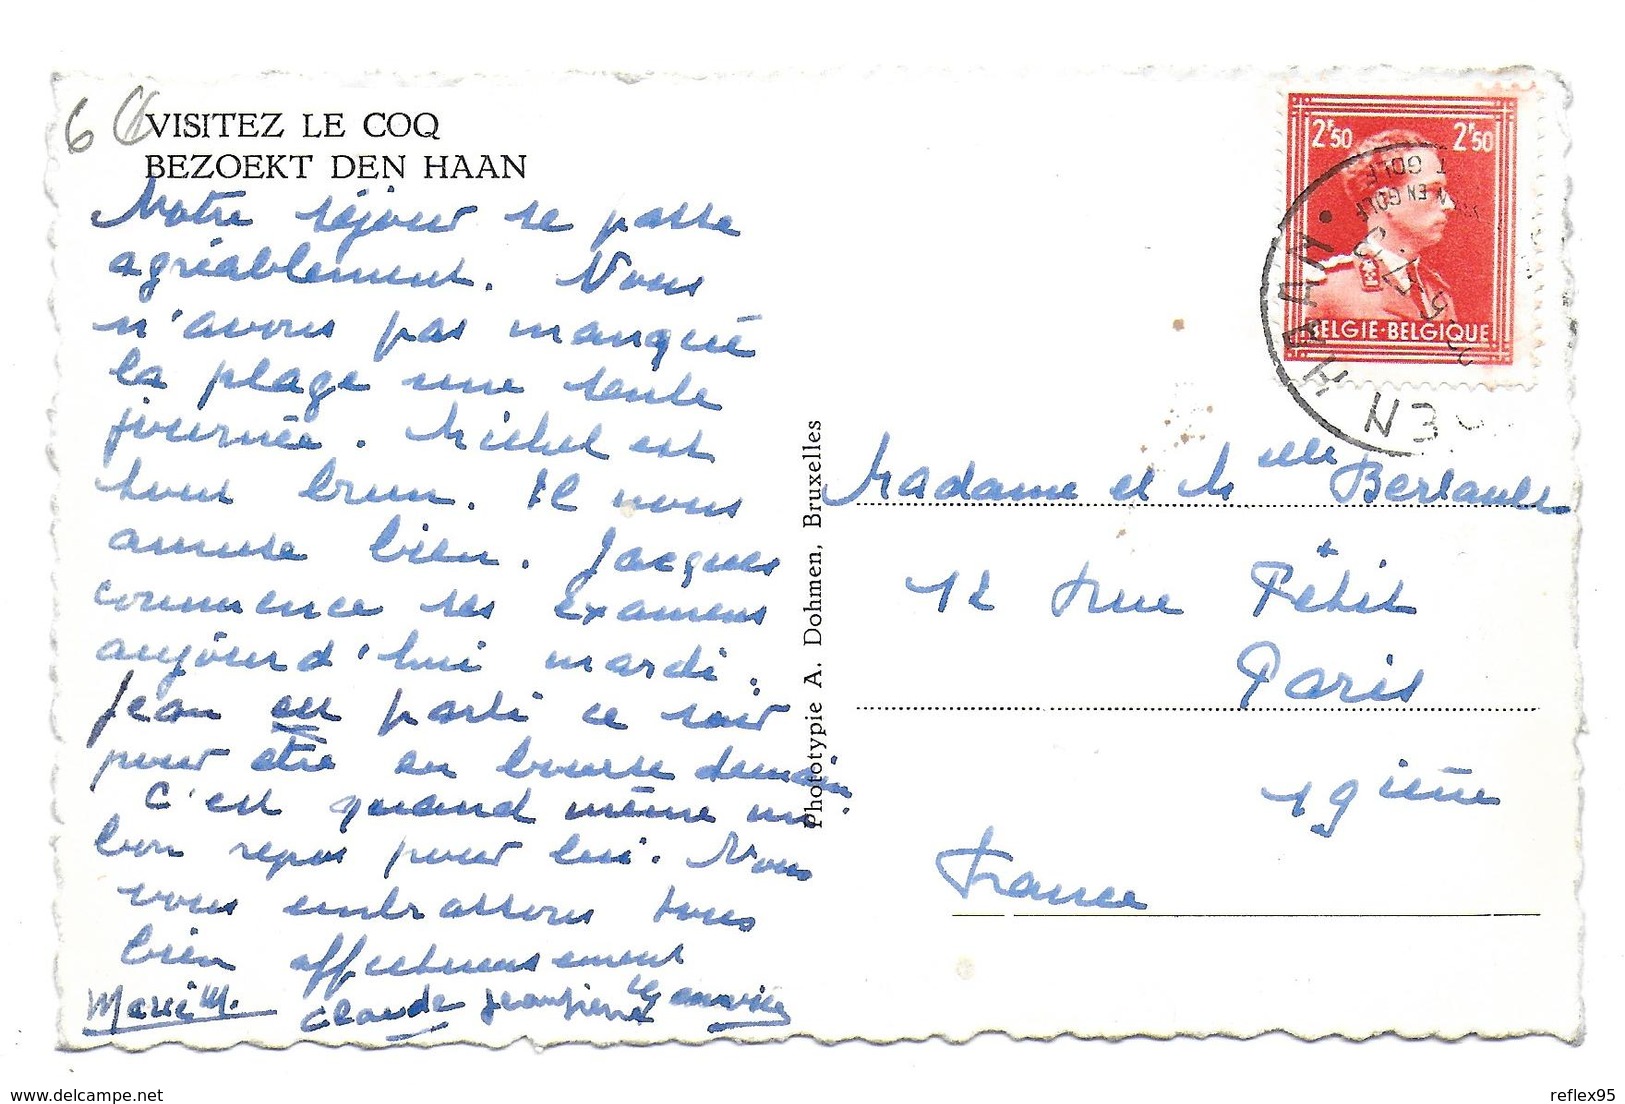 6
VISITEZ LE COQ
BEZOEKT DEN HAAN
Notre séjour se passe
agréablement. Nous
n'avons pas manqué
la plage une seule
journée. Michel est
tout brun. Il nous
amuse bien. Jacques
commence ses examens
aujourd'hui mardi.
Jean est parti ce soir
pour être en bourse demain
C'est quand même un
bon repos pour lui. Nous
vous embrassons tous
bien affectueusement
Marie M. Claude Jeanpierre
Phototypie A. Dohmen, Bruxelles
2F50 2F50
BELGIE-BELGIQUE
DEN HAAN
EN GOLF
T GOLF
Madame et Melle Bertault
12 rue Petit
Paris
19ième
France
reflex95